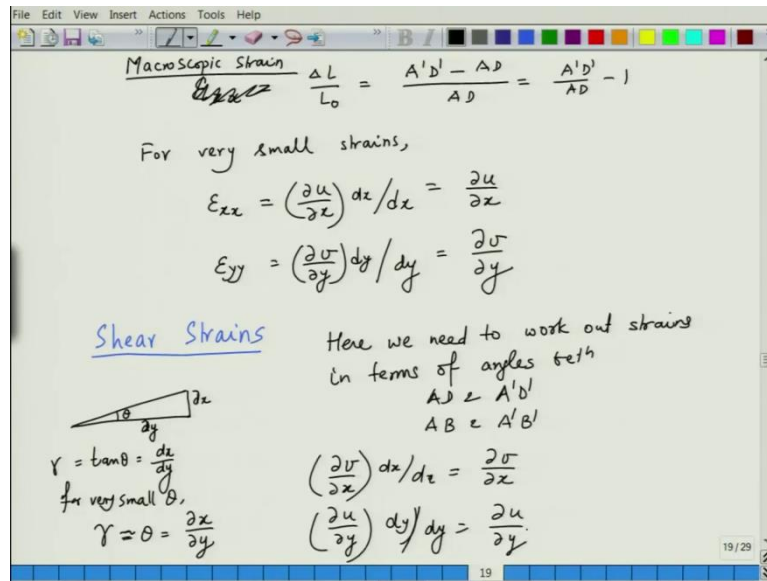 File Edit View Insert Actions Tools Help
Macroscopic Strain
ΔL/L₀ = (A'D' − AD)/AD = A'D'/AD − 1
For very small strains,
εxx = (∂u/∂x) dx/dx = ∂u/∂x
εyy = (∂v/∂y) dy/dy = ∂v/∂y
Shear Strains
Here we need to work out strains
in terms of angles betn
AD & A'D'
AB & A'B'
θ
∂x
∂y
γ = tanθ = dx/dy
for very small θ,
γ ≃ θ = ∂x/∂y
(∂v/∂x) dx/dx = ∂v/∂x
(∂u/∂y) dy/dy = ∂u/∂y.
19/29
19